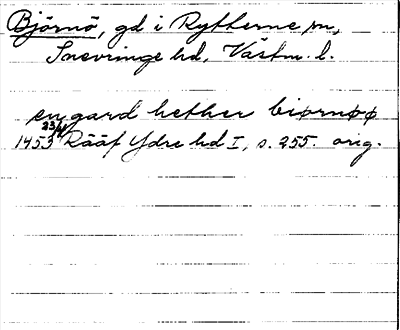 Björnö, gd i Rytterne sn,
Snevringe hd, Västm. l.
en gard hether biørnøø
1453 23/4 Rääf Ydre hd I, s. 255. orig.